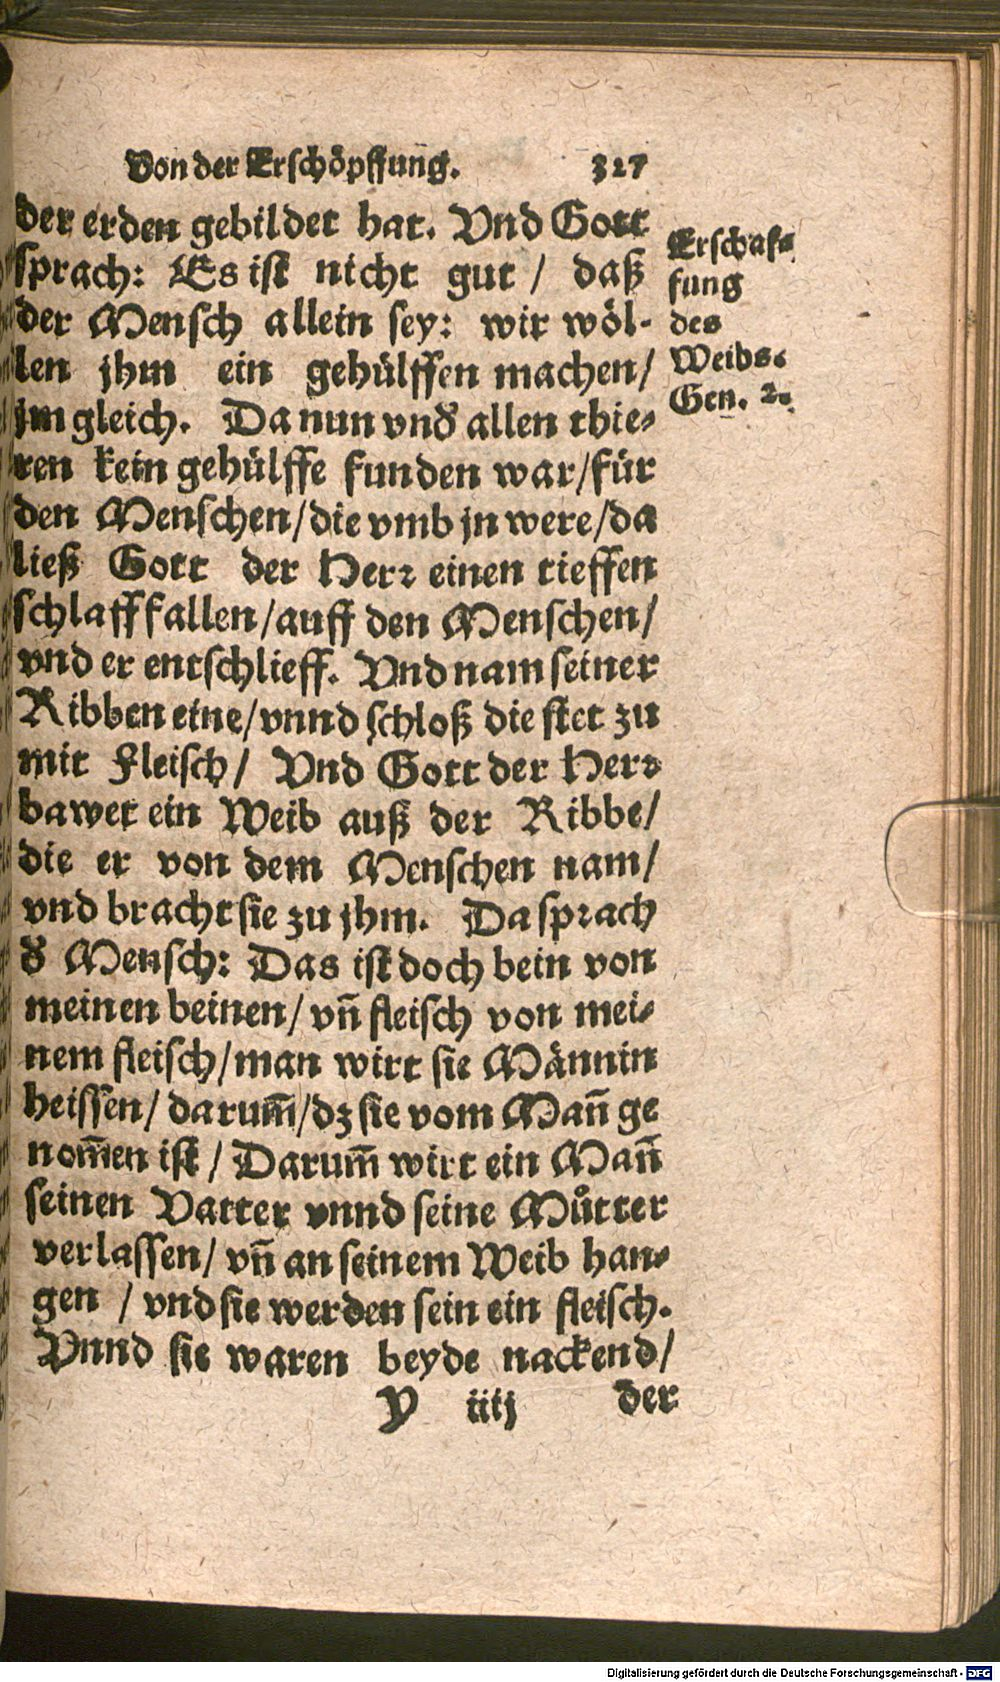 Von der Erschöpffung. 327
der erden gebildet hat. Vnd Gott
sprach: Es ist nicht gut / daß
der Mensch allein sey: wir wöl-
len jhm ein gehülffen machen/
jm gleich. Da nun vnd̕ allen thie-
ren kein gehülffe funden war/für
den Menschen/die vmb jn were/da
ließ Gott der Herr einen tieffen
schlaff fallen/auff den Menschen/
vnd er entschlieff. Vnd nam seiner
Ribben eine/vnnd schloß die stet zu
mit Fleisch/ Vnd Gott der Herr
bawet ein Weib auß der Ribbe/
die er von dem Menschen nam/
vnd bracht sie zu jhm. Da sprach
d̕ Mensch: Das ist doch bein von
meinen beinen/ vn̄ fleisch von mei-
nem fleisch/man wirt sie Männin
heissen/ darum̄/dz sie vom Man̄ ge
nom̄en ist / Darum̄ wirt ein Man̄
seinen Vatter vnnd seine Můtter
verlassen/ vn̄ an seinem Weib han-
gen / vnd sie werden sein ein fleisch.
Vnnd sie waren beyde nackend/
Y iiij der
Erschaf-
fung
des
Weibs.
Gen. 2.
Digitalisierung gefördert durch die Deutsche Forschungsgemeinschaft - DFG